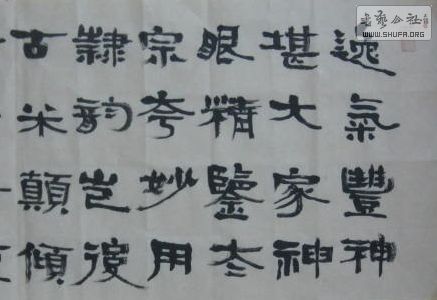 逸氣豐神
堪大家神
眼精鑒夳
宗夸妙用
隸韵豈復
古米顛傾
書藝公社
WWW.SHUFA.ORG